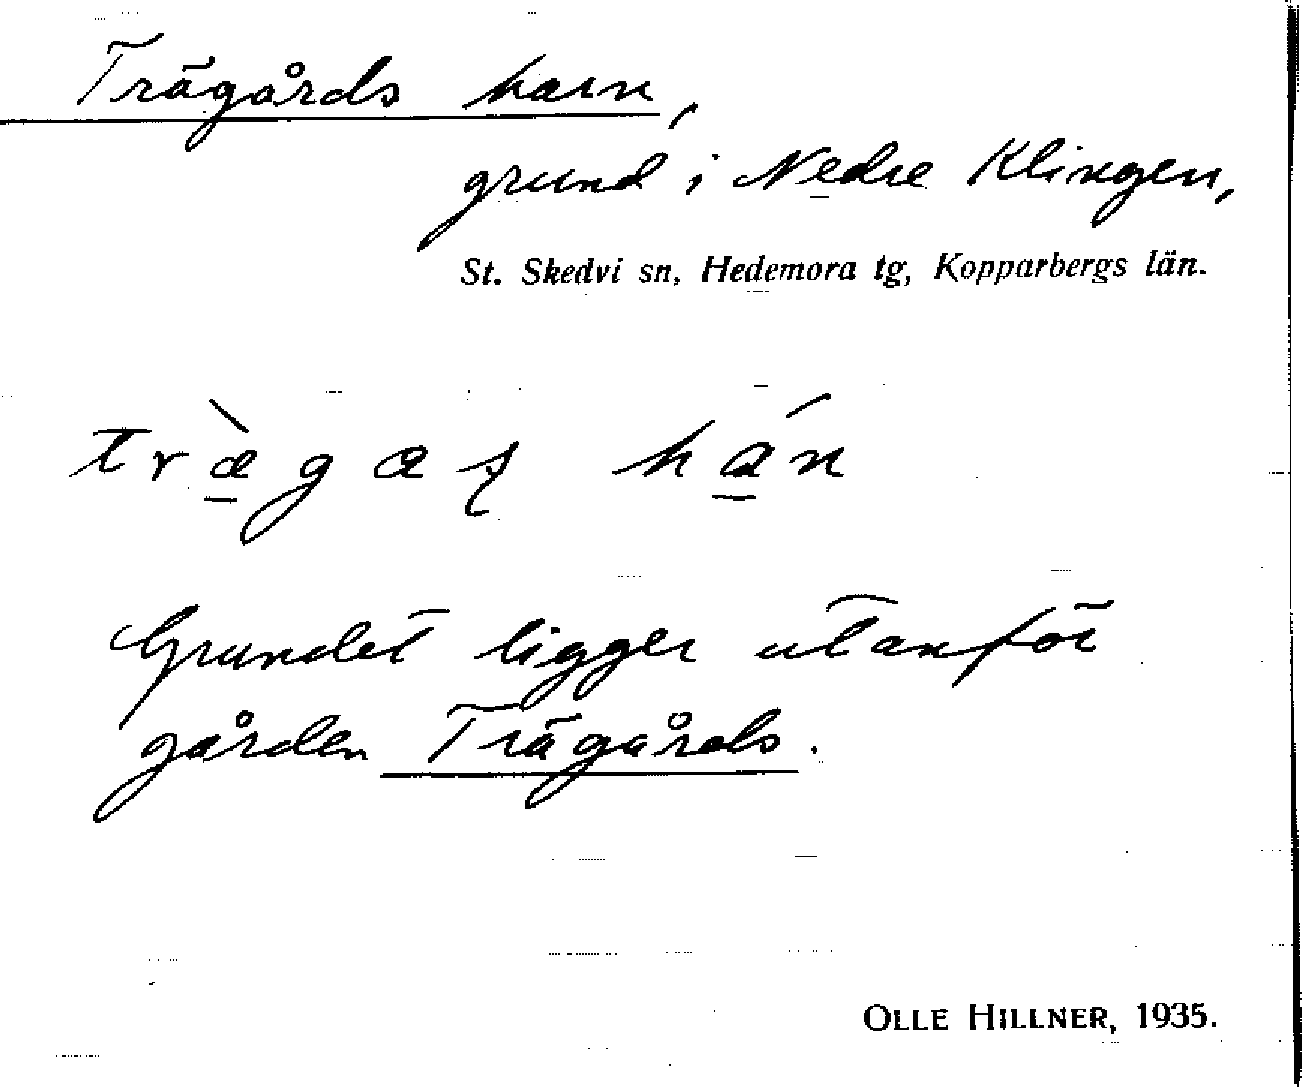 Trägårds harn,
grund i Nedre Klingen,
St. Skedvi sn, Hedemora tg, Kopparbergs län.
træ̀gaʂ há̱n
Grundet ligger utanför
gården Trägårds.
OLLE HILLNER, 1935.